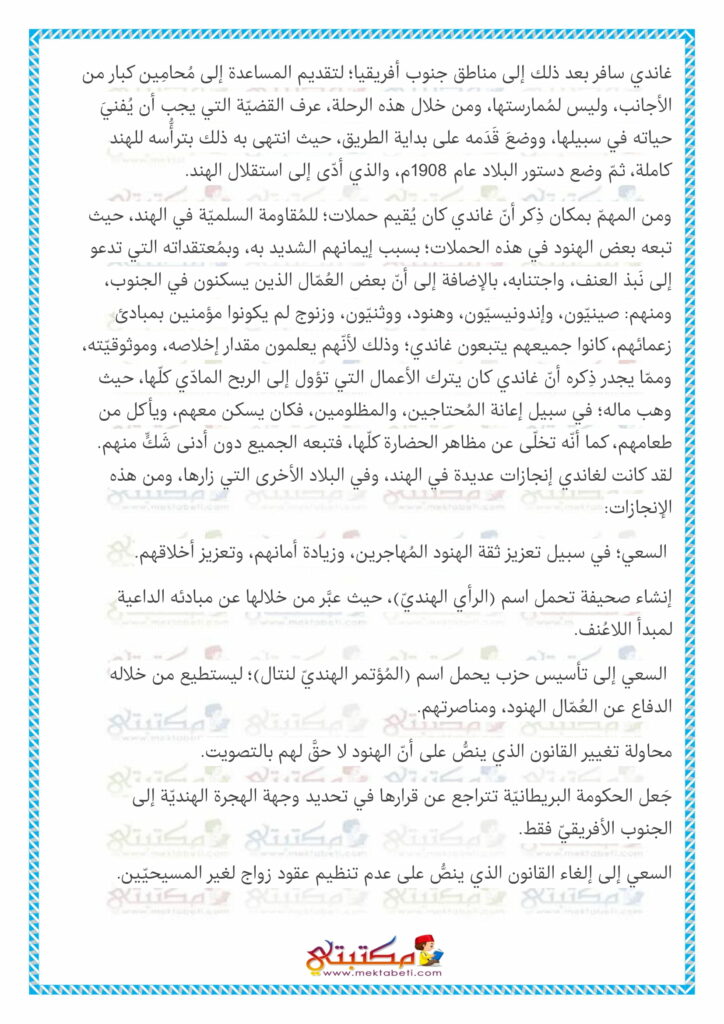 غاندي سافر بعد ذلك إلى مناطق جنوب أفريقيا؛ لتقديم المساعدة إلى مُحامِين كبار من
الأجانب، وليس لمُمارستها، ومن خلال هذه الرحلة، عرف القضيّة التي يجب أن يُفنيَ
حياته في سبيلها، ووضعَ قَدَمه على بداية الطريق، حيث انتهى به ذلك بترأُّسه للهند
كاملة، ثمّ وضع دستور البلاد عام 1908م، والذي أدّى إلى استقلال الهند.
ومن المهمّ بمكان ذِكر أنّ غاندي كان يُقيم حملات؛ للمُقاومة السلميّة في الهند، حيث
تبعه بعض الهنود في هذه الحملات؛ بسبب إيمانهم الشديد به، وبمُعتقداته التي تدعو
إلى نَبذ العنف، واجتنابه، بالإضافة إلى أنّ بعض العُمّال الذين يسكنون في الجنوب،
ومنهم: صينيّون، وإندونيسيّون، وهنود، ووثنيّون، وزنوج لم يكونوا مؤمنين بمبادئ
زعمائهم، كانوا جميعهم يتبعون غاندي؛ وذلك لأنّهم يعلمون مقدار إخلاصه، وموثوقيّته،
وممّا يجدر ذِكره أنّ غاندي كان يترك الأعمال التي تؤول إلى الربح المادّي كلّها، حيث
وهب ماله؛ في سبيل إعانة المُحتاجين، والمظلومين، فكان يسكن معهم، ويأكل من
طعامهم، كما أنّه تخلّى عن مظاهر الحضارة كلّها، فتبعه الجميع دون أدنى شَكٍّ منهم.
لقد كانت لغاندي إنجازات عديدة في الهند، وفي البلاد الأخرى التي زارها، ومن هذه
الإنجازات:
السعي؛ في سبيل تعزيز ثقة الهنود المُهاجرين، وزيادة أمانهم، وتعزيز أخلاقهم.
إنشاء صحيفة تحمل اسم (الرأي الهنديّ)، حيث عبَّر من خلالها عن مبادئه الداعية
لمبدأ اللاعُنف.
السعي إلى تأسيس حزب يحمل اسم (المُؤتمر الهنديّ لنتال)؛ ليستطيع من خلاله
الدفاع عن العُمّال الهنود، ومناصرتهم.
محاولة تغيير القانون الذي ينصُّ على أنّ الهنود لا حقَّ لهم بالتصويت.
جَعل الحكومة البريطانيّة تتراجع عن قرارها في تحديد وجهة الهجرة الهنديّة إلى
الجنوب الأفريقيّ فقط.
السعي إلى إلغاء القانون الذي ينصُّ على عدم تنظيم عقود زواج لغير المسيحيّين.
مكتبتي
www.mektabeti.com